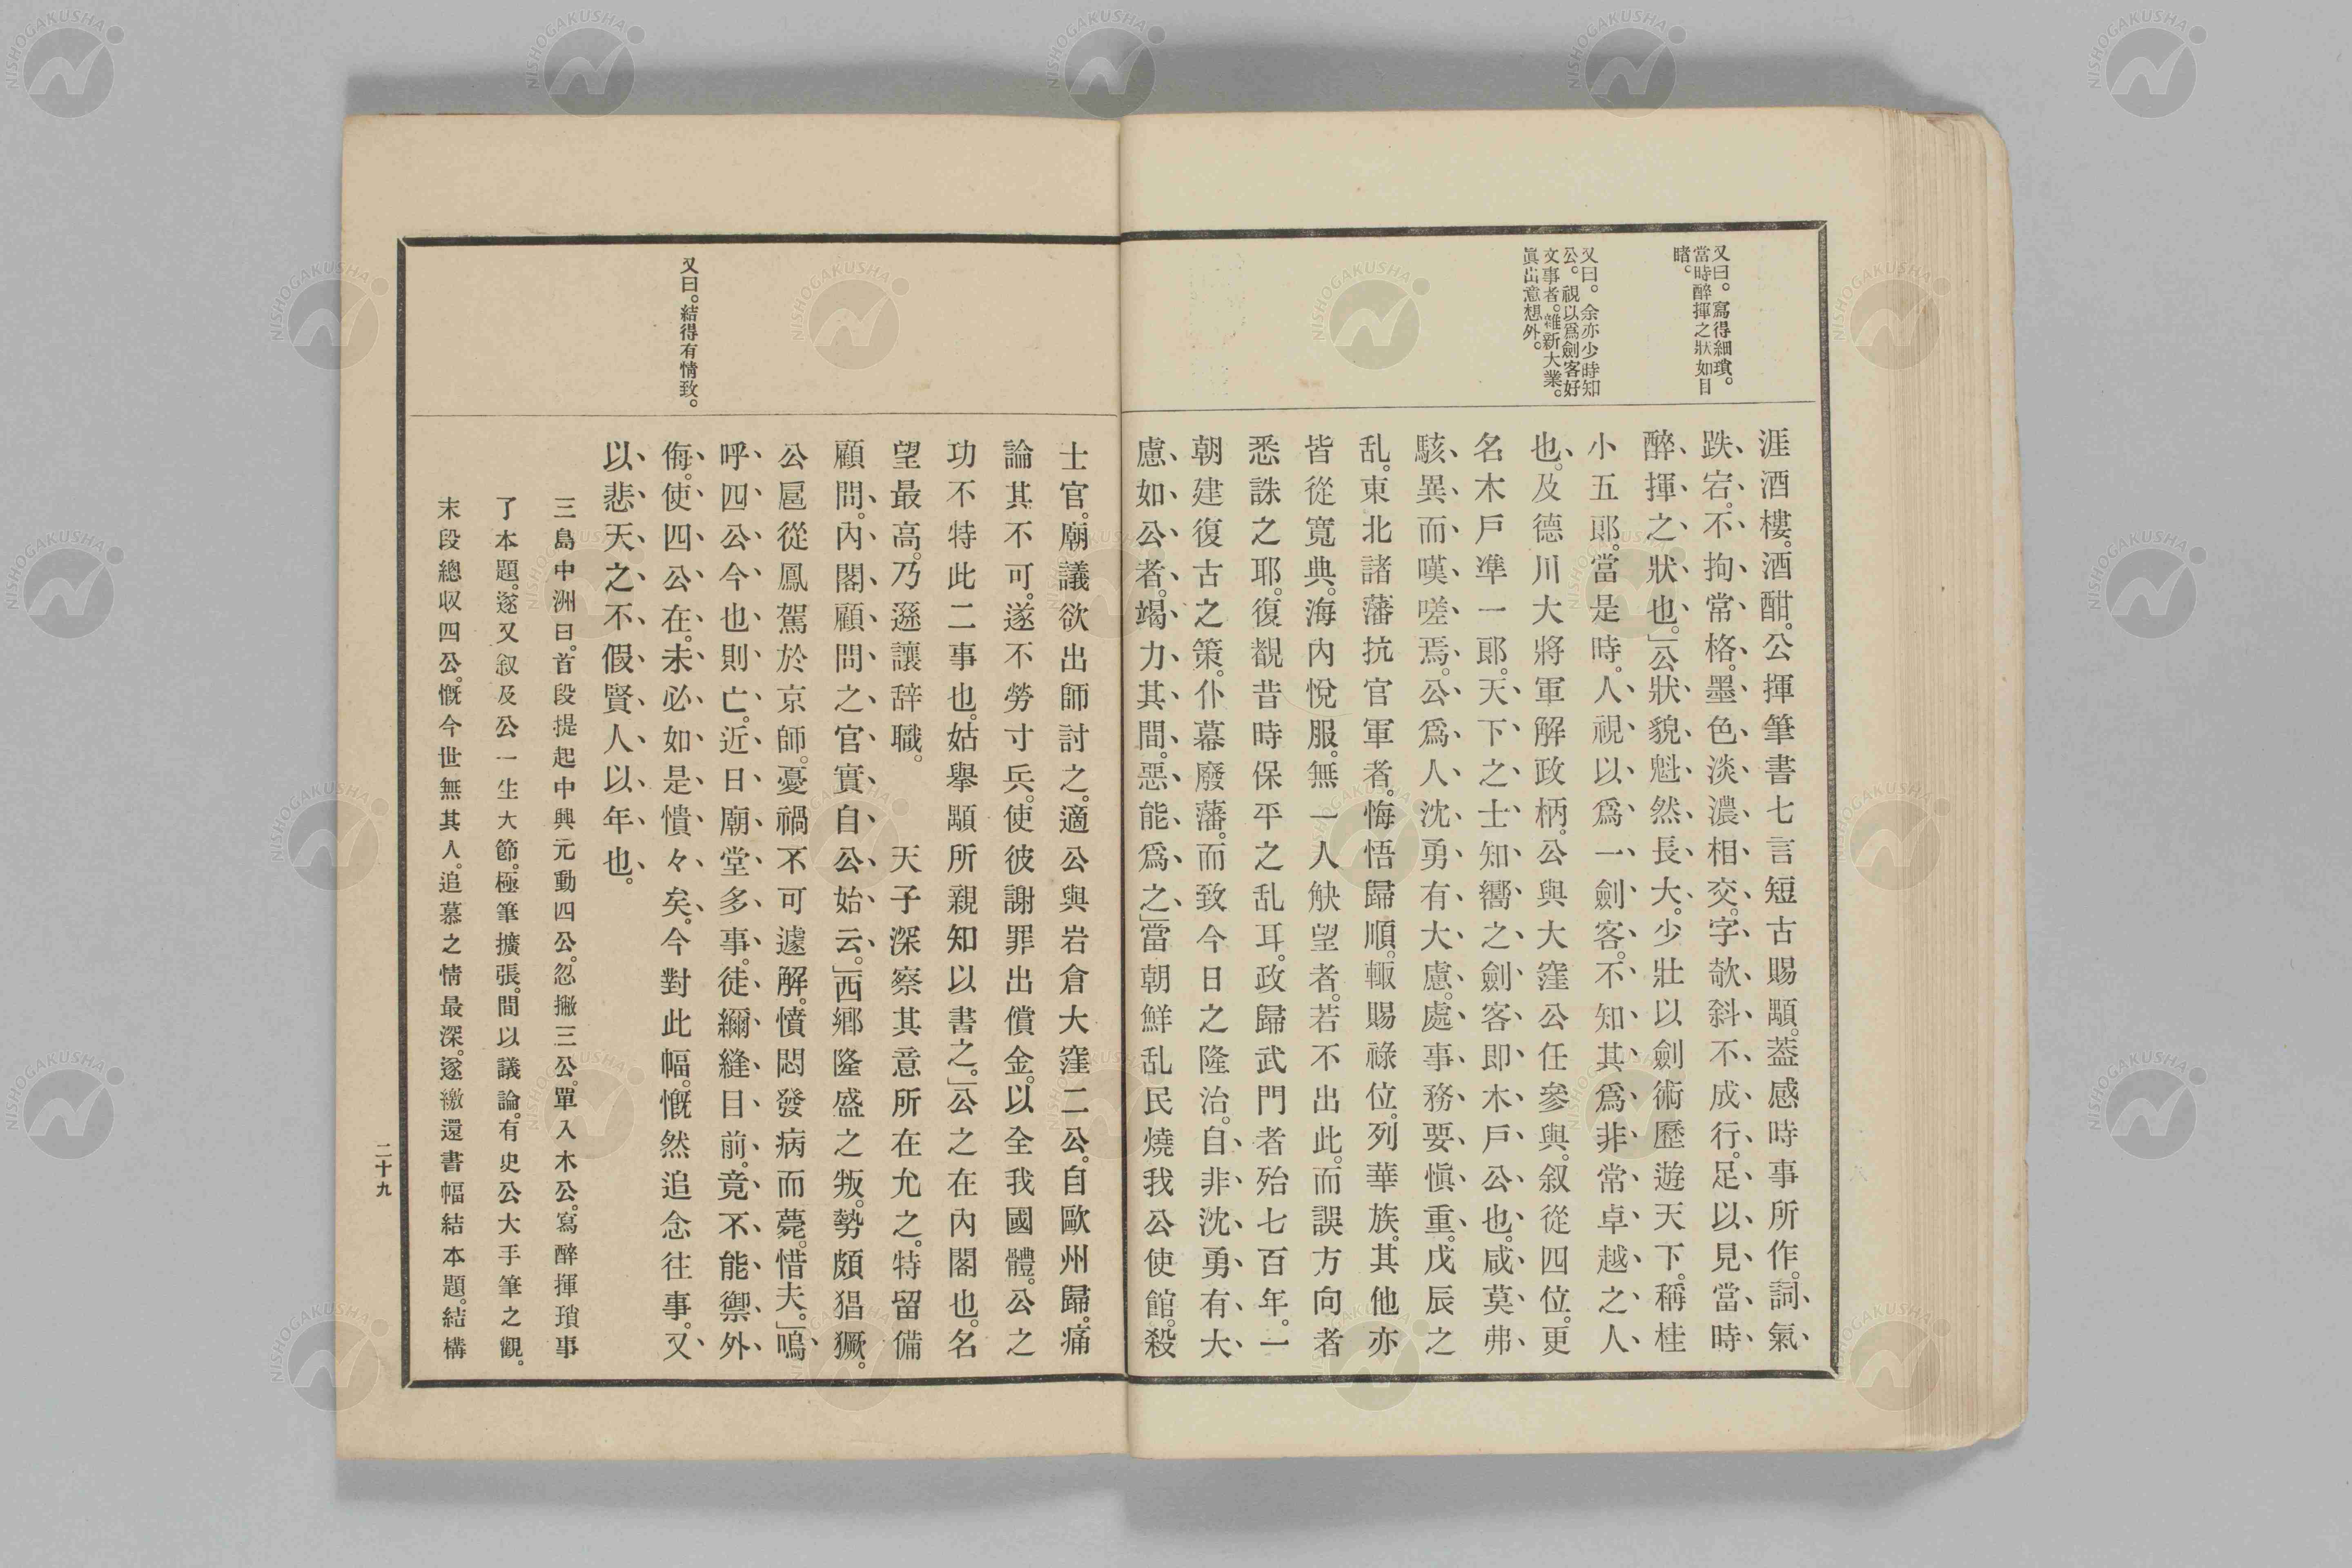 又曰。寫得細瑣。
當時醉揮之狀如目
睹。
又曰。余亦少時知
公。視以爲劍客好
文事者。維新大業。
眞出意想外。
涯酒樓。酒酣。公揮筆書七言短古賜顒。蓋感時事所作。詞氣
跌宕。不拘常格。墨色淡濃相交。字欹斜不成行。足以見當時
醉揮之狀也。」公狀貌魁然長大。少壯以劍術歷遊天下。稱桂
小五郎。當是時。人視以爲一劍客。不知其爲非常卓越之人
也。及德川大將軍解政柄。公與大窪公任參與。叙從四位。更
名木戶準一郎。天下之士知嚮之劍客即木戶公也。咸莫弗
駭異而嘆嗟焉。公爲人沈勇有大慮。處事務要愼重。戊辰之
乱。東北諸藩抗官軍者。悔悟歸順。輙賜祿位。列華族。其他亦
皆從寬典。海內悅服。無一人觖望者。若不出此。而誤方向者
悉誅之耶。復覩昔時保平之乱耳。政歸武門者殆七百年。一
朝建復古之策。仆幕廢藩。而致今日之隆治。自非沈勇有大
慮如公者。竭力其間。惡能爲之」當朝鮮乱民燒我公使館。殺
士官。廟議欲出師討之。適公與岩倉大窪二公。自歐州歸。痛
論其不可。遂不勞寸兵。使彼謝罪出償金。以全我國體。公之
功不特此二事也。姑擧顒所親知以書之。」公之在內閣也。名
望最高。乃遜讓辞職。天子深察其意所在允之。特留備
顧問。內閣顧問之官實自公始云。」西鄉隆盛之叛。勢頗猖獗。
公扈從鳳駕於京師。憂禍不可遽解。憤悶發病而薨。惜夫。」嗚
呼四公今也則亡。近日廟堂多事。徒繃縫目前。竟不能禦外
侮。使四公在。未必如是憒々矣。今對此幅。慨然追念往事。又
以悲天之不假賢人以年也。
三島中洲曰。首段提起中興元動四公。忽撇三公。單入木公。寫醉揮瑣事
了本題。遂又叙及公一生大節。極筆擴張。間以議論。有史公大手筆之觀。
末段總収四公。慨今世無其人。追慕之情最深。遂繳還書幅結本題。結構
又曰。結得有情致。
二十九
NISHOGAKUSHA